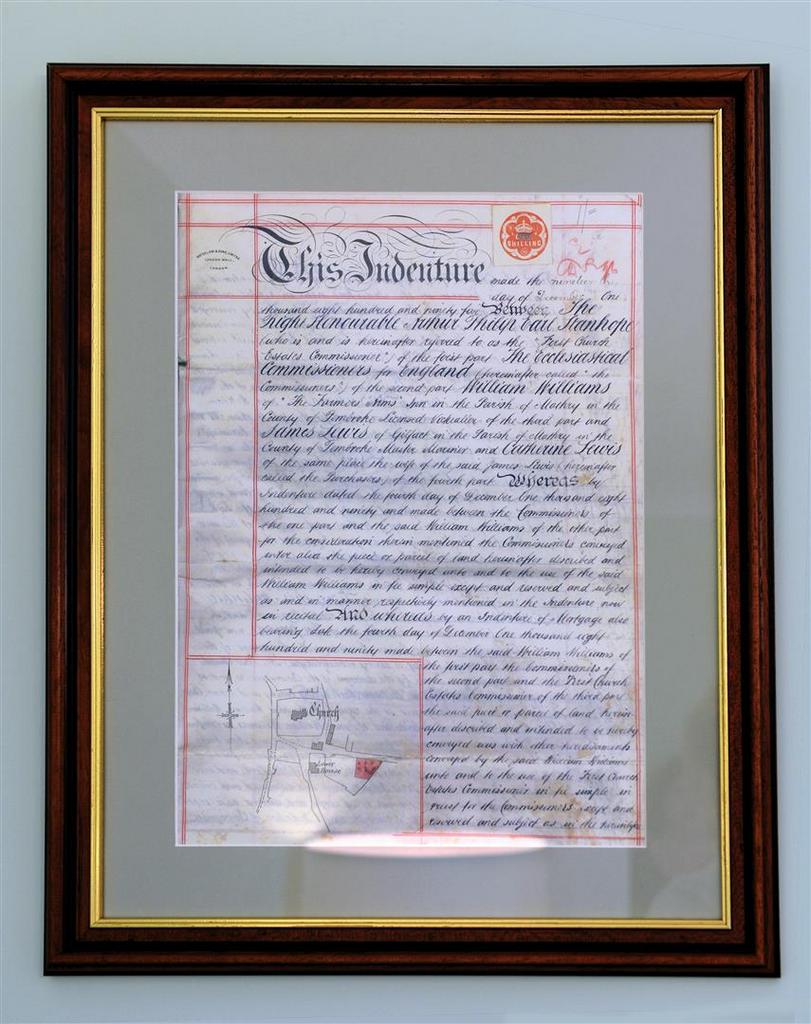 SHILLING
WATERLOW & SONS LIMITED
LONDON WALL
LONDON
This Indenture made the
day of December One
thousand eight hundred and ninety five Between The
Right Honourable Arthur Philip Earl Stanhope
(who is and is hereinafter referred to as the "First Church
Estates Commissioner") of the first part The Ecclesiastical
Commissioners for England (hereinafter called "the
Commissioners") of the second part William Williams
of "The Farmers Arms" Inn in the Parish of Mathry in the
County of Pembroke Licensed Victualler of the third part and
James Lewis of in the Parish of Mathry in the
County of Pembroke Master Mariner and Catherine Lewis
of the same place the wife of the said James Lewis (hereinafter
called the Purchasers) of the fourth part Whereas by
Indenture dated the fourth day of December One thousand eight
hundred and ninety and made between the Commissioners of
the one part and the said William Williams of the other part
for the consideration therein mentioned the Commissioners conveyed
inter alia the piece or parcel of land hereinafter described and
intended to be hereby conveyed unto and to the use of the said
William Williams in fee simple except and reserved and subject
as and in manner respectively mentioned in the Indenture now
in recital And whereas by an Indenture of Mortgage also
bearing date the fourth day of December One thousand eight
hundred and ninety made between the said William Williams of
the first part the Commissioners of
the second part and the First Church
Estates Commissioner of the third part
the said piece or parcel of land herein
after described and intended to be hereby
conveyed was with other hereditaments
conveyed by the said William Williams
unto and to the use of the First Church
Estates Commissioner in fee simple in
trust for the Commissioners except and
reserved and subject as in the hereinbefore
Church
Lower
House